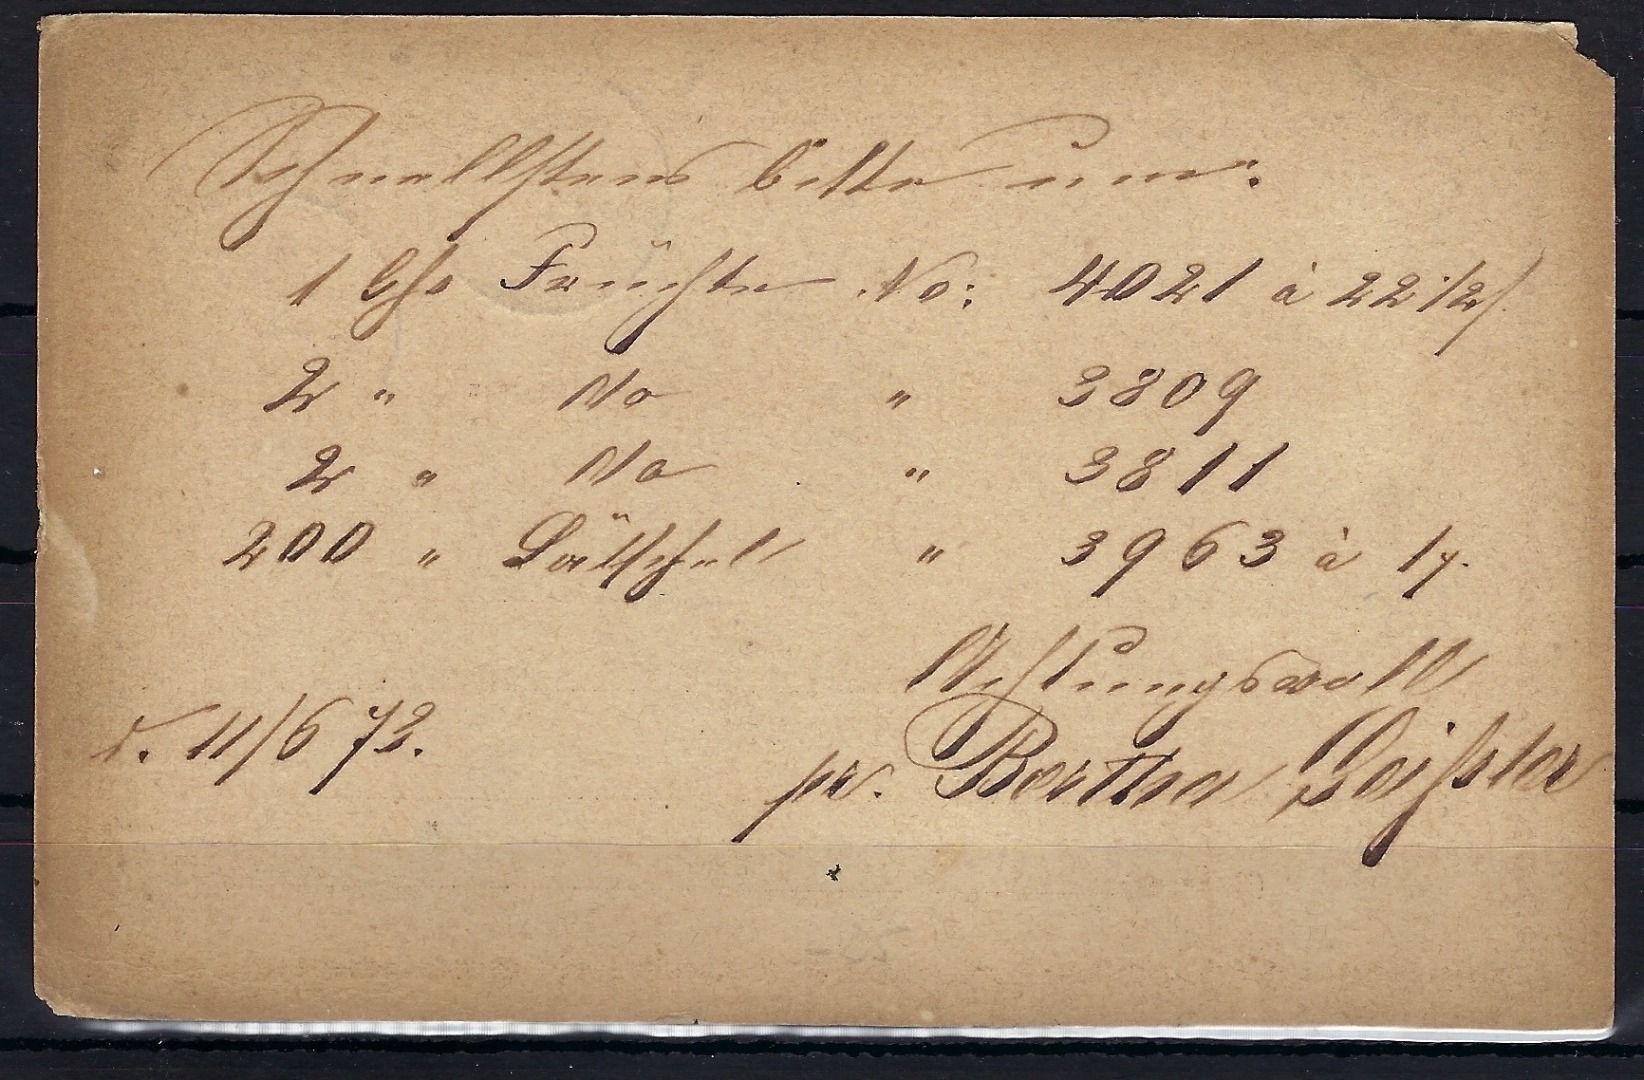 Schnellstens bitte um:
1 Früchte No: 4021 à 22 1/2
2 " do " 3809
2 " do " 3811
200 " " 3963 à 1
Achtungsvoll
d. 11/6 73. pr. Bertha